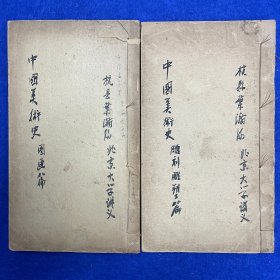 中國美術史 國畫篇
杭县葉瀚編 北京大学講义
中國美術史 雕刻雕塑篇
杭县葉瀚編 北京大学講义